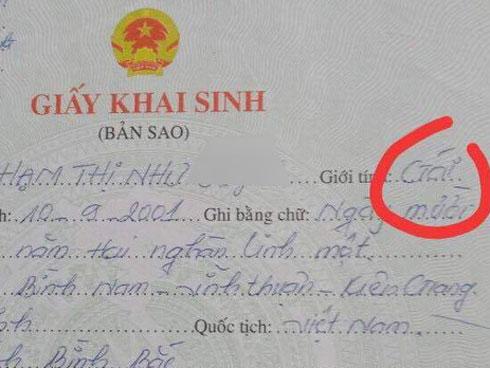 GIẤY KHAI SINH
(BẢN SAO)
HẠM THỊ NHƯ Giới tính: Gái
h: 10-9-2001 Ghi bằng chữ: Ngày mười
năm Hai nghàn linh một
Bình Nam - Vĩnh thuận - Kiên Giang
Quốc tịch: Việt Nam
h Bình Bắc